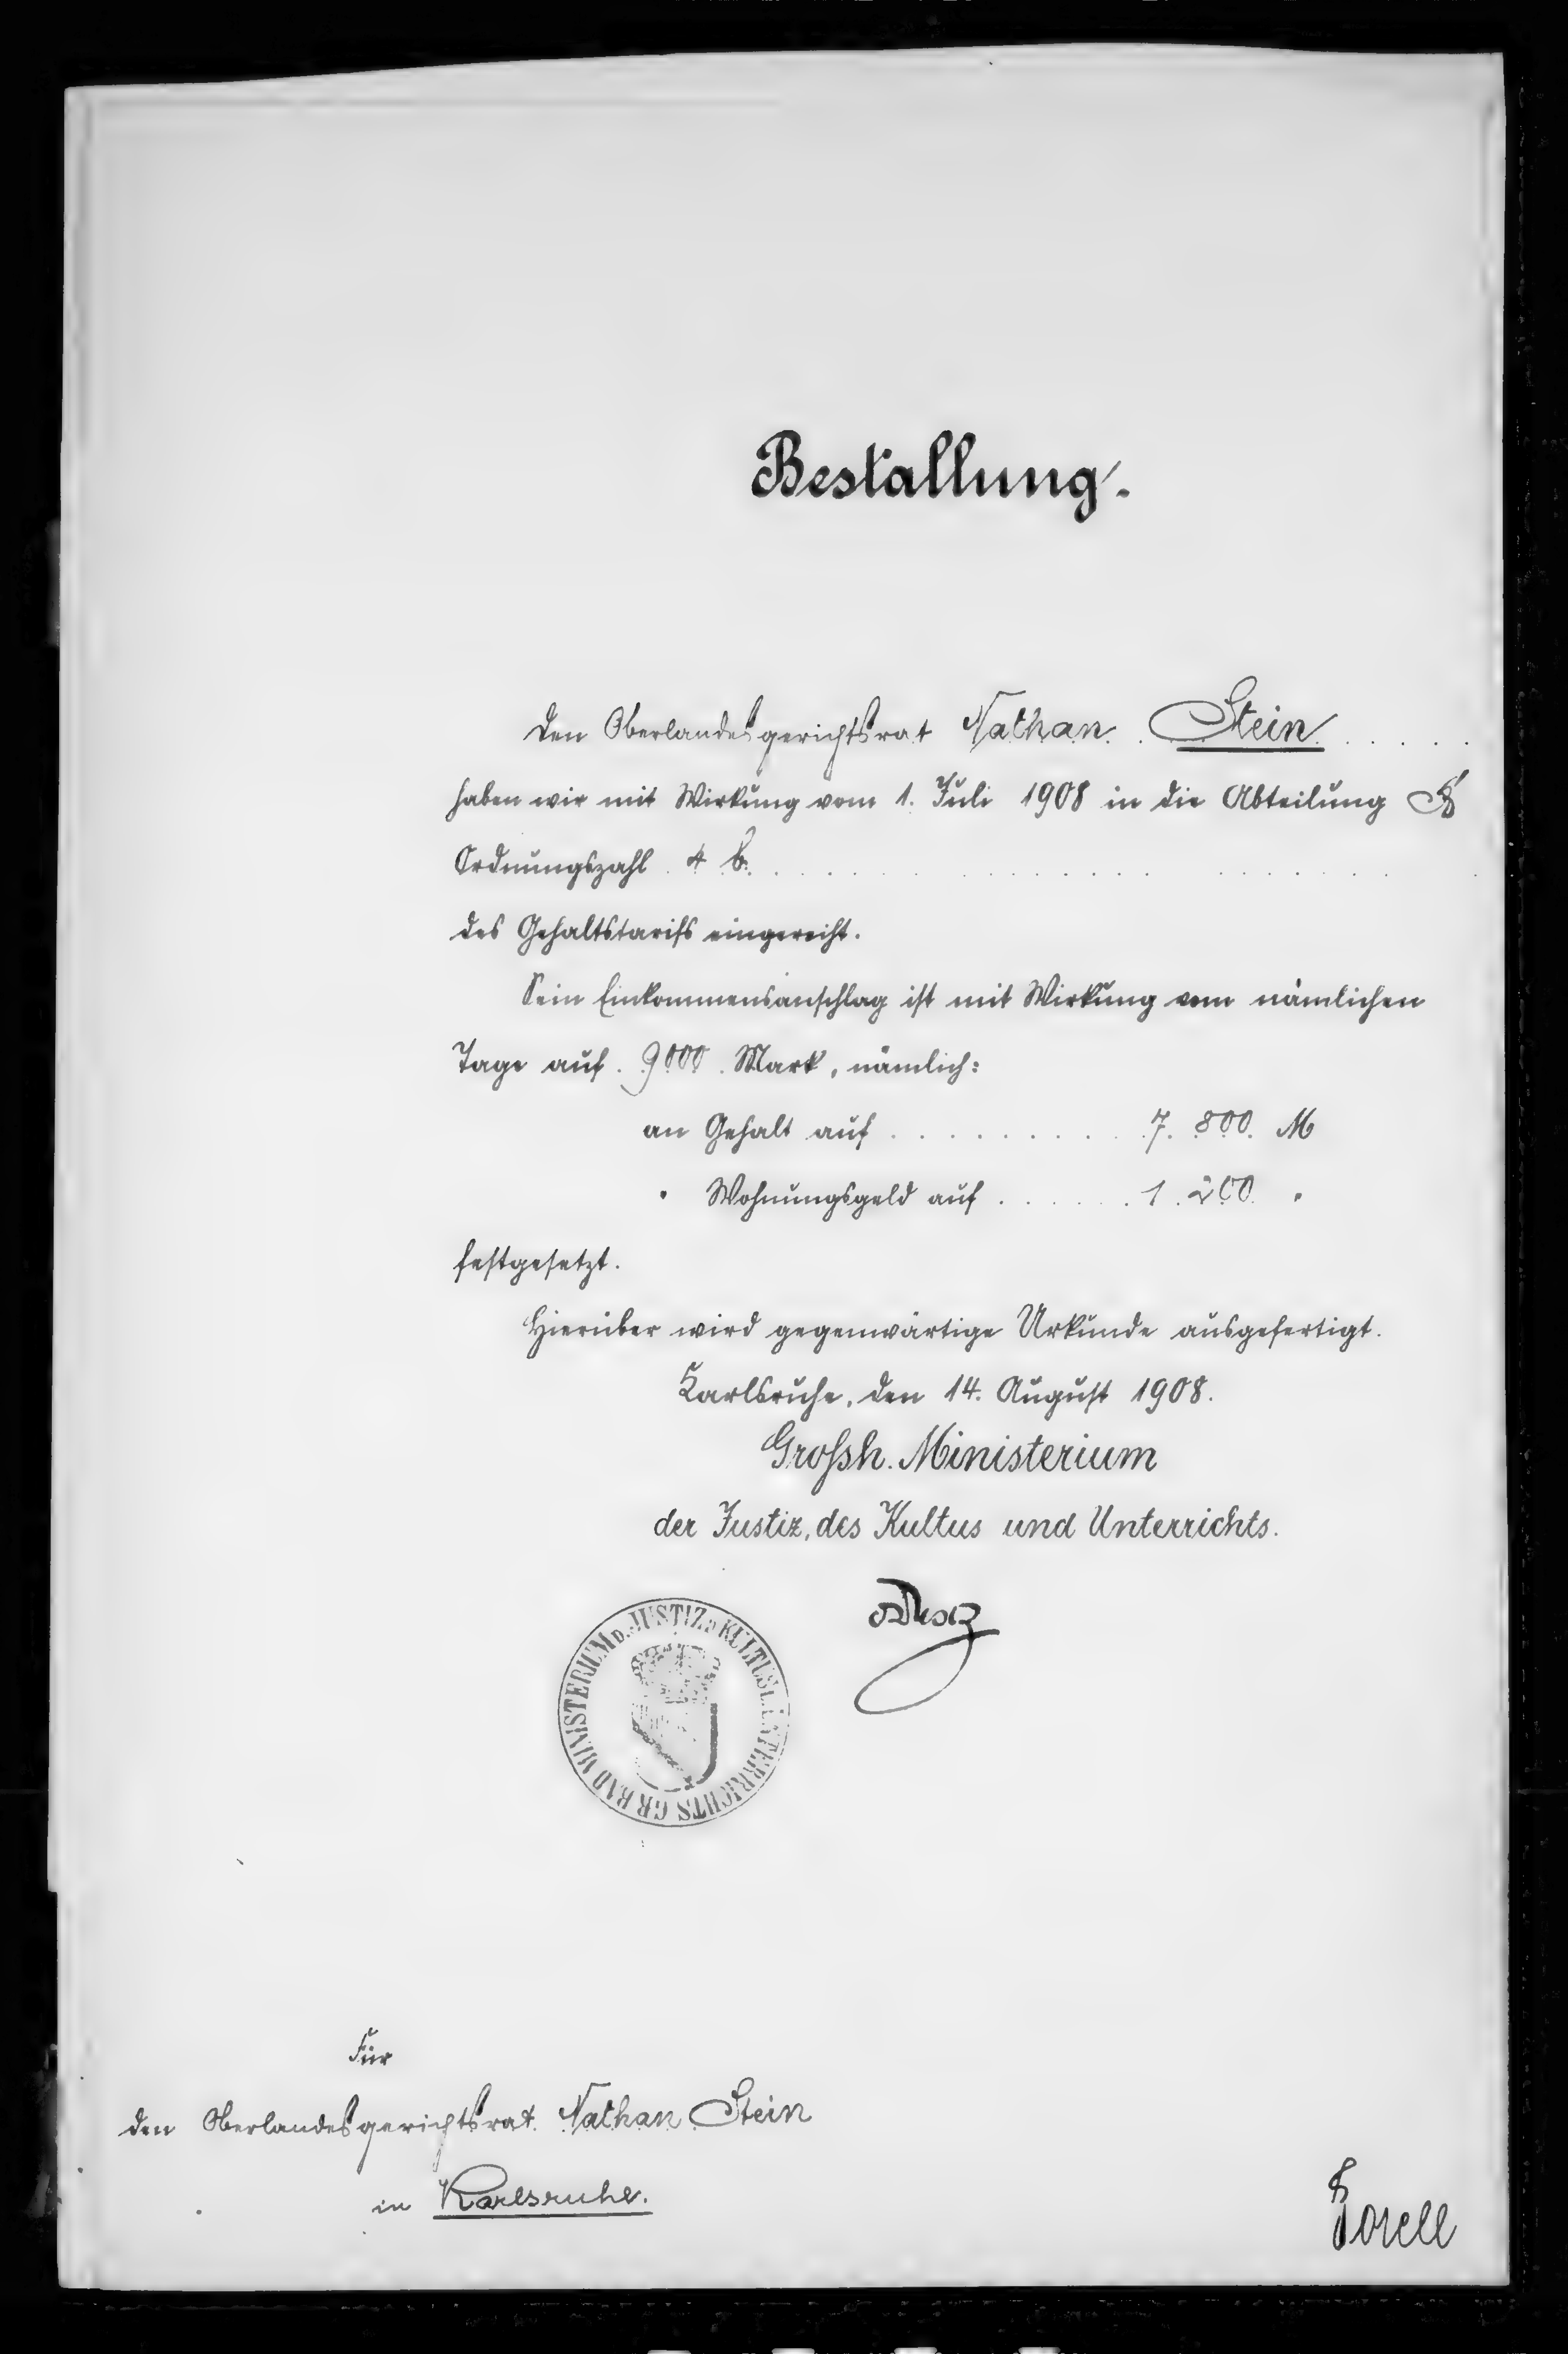 Bestallung.
Den Oberlandesgerichtsrat Nathan Stein
haben wir mit Wirkung vom 1. Juli 1908 in die Abteilung
Ordnungszahl 4 b.
des Gehaltstarifs eingereiht.
Sein Einkommensanschlag ist mit Wirkung vom nämlichen
Tage auf 9000 Mark, nämlich:
an Gehalt auf . . . . . . . . . . 7.800. M
" Wohnungsgeld auf . . . . . . 1.200 "
festgesetzt.
Hierüber wird gegenwärtige Urkunde ausgefertigt.
Karlsruhe, den 14. August 1908.
Großh. Ministerium
der Justiz, des Kultus und Unterrichts.
MINISTERIUM D. JUSTIZ D. KULTUS U. UNTERRICHTS GR BAD
Für
den Oberlandesgerichtsrat Nathan Stein
in Karlsruhe.